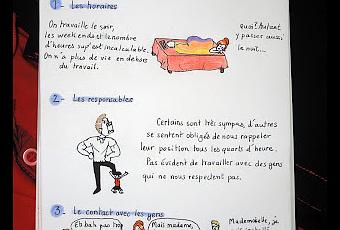 1- Les horaires
On travaille le soir,
les week ends et le nombre
d'heures sup' est incalculable.
On n'a plus de vie en dehors
du travail.
quoi? Autant
y passer aussi
la nuit...
2- Les responsables
Certains sont très sympas, d'autres
se sentent obligés de nous rappeler
leur position tous les quarts d'heure.
Pas évident de travailler avec des gens
qui ne nous respectent pas.
3- Le contact avec les gens
Eh bah pas trop
Mais madame,
Mademoiselle, je